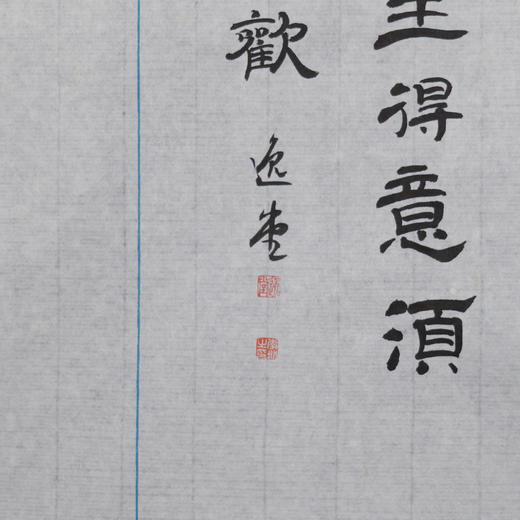 生得意須
歡
逸堂